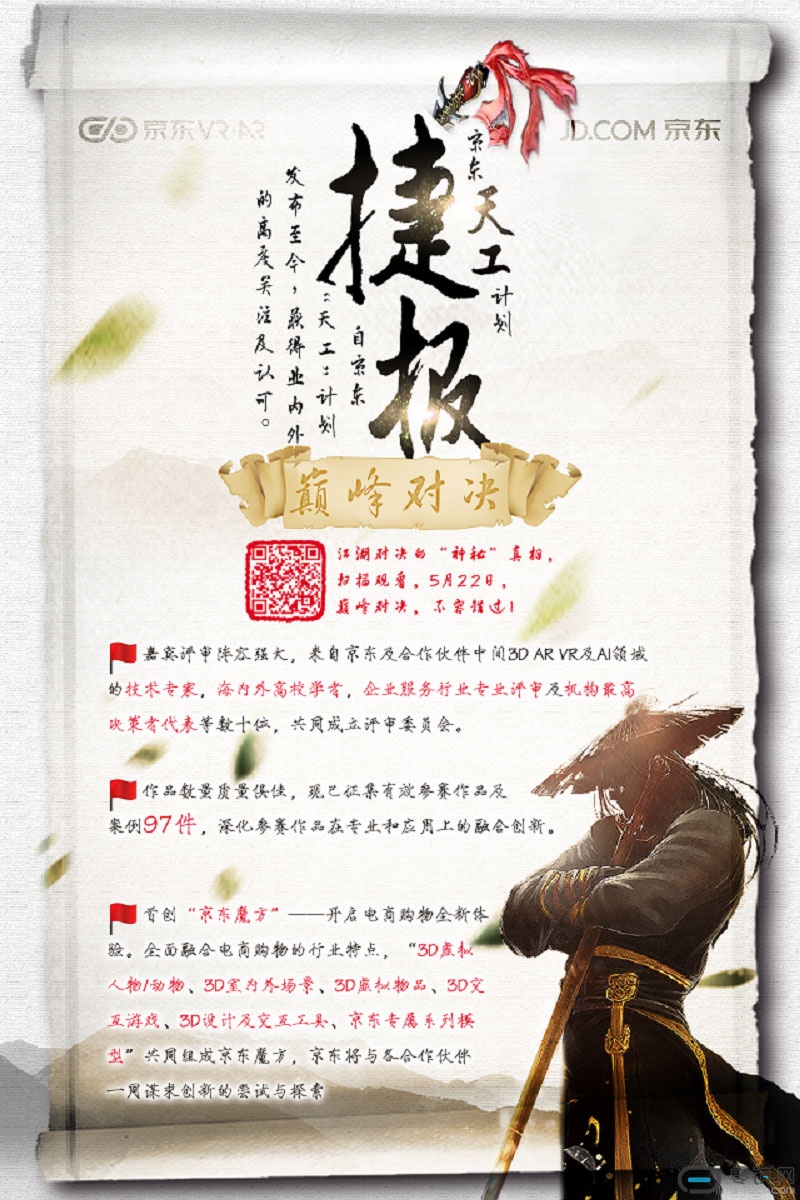 京东VR·AR
JD.COM 京东
京东天工计划
捷报
自京东
“天工”计划
发布至今，获得业内外
的高度关注及认可。
巅峰对决
江湖对决的“神秘”真相，
扫描观看，5月22日，
巅峰对决，不容错过！
嘉宾评审阵容强大，来自京东及合作伙伴中间3D AR VR及AI领域
的技术专家，海内外高校学者，企业服务行业专业评审及机构最高
决策者代表等数十位，共同成立评审委员会。
作品数量质量俱佳，现已征集有效参赛作品及
案例97件，深化参赛作品在专业和应用上的融合创新。
首创“京东魔方”——开启电商购物全新体
验。全面融合电商购物的行业特点，“3D虚拟
人物/动物、3D室内外场景、3D虚拟物品、3D交
互游戏、3D设计及交互工具、京东专属系列模
型”共同组成京东魔方，京东将与各合作伙伴
一同谋求创新的尝试与探索